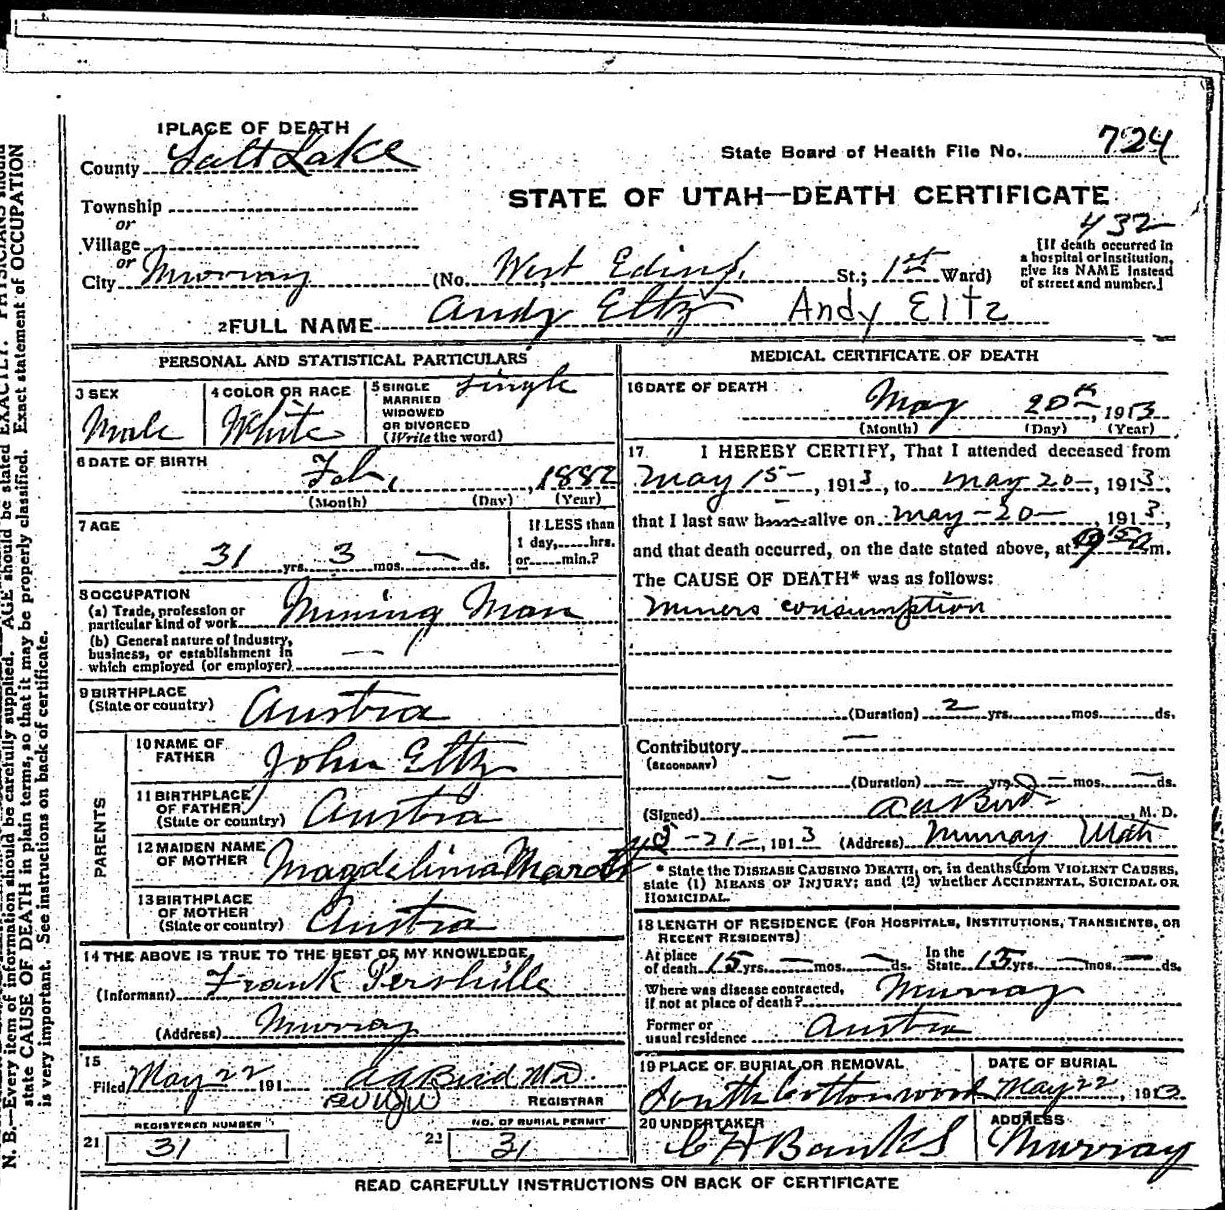 1 PLACE OF DEATH
County Salt Lake
State Board of Health File No. 724
STATE OF UTAH—DEATH CERTIFICATE
Township
or
Village
or
432
City Murray (No. West St.; 1st Ward)
[If death occurred in a hospital or institution, give its NAME instead of street and number.]
2 FULL NAME Andy Eltz Andy Eltz
PERSONAL AND STATISTICAL PARTICULARS
3 SEX
Male
4 COLOR OR RACE
White
5 SINGLE
MARRIED
WIDOWED
OR DIVORCED
(Write the word)
single
6 DATE OF BIRTH
Feb, , 1882
(Month) (Day) (Year)
7 AGE
31 yrs. 3 mos. — ds.
If LESS than
1 day, hrs.
or min.?
8 OCCUPATION
(a) Trade, profession or
particular kind of work Mining Man
(b) General nature of industry,
business, or establishment in
which employed (or employer) —
9 BIRTHPLACE
(State or country) Austria
PARENTS
10 NAME OF
FATHER John Eltz
11 BIRTHPLACE
OF FATHER
(State or country) Austria
12 MAIDEN NAME
OF MOTHER Magdelima
13 BIRTHPLACE
OF MOTHER
(State or country) Austria
14 THE ABOVE IS TRUE TO THE BEST OF MY KNOWLEDGE
(Informant) Frank Pershille
(Address) Murray
15
Filed May 22 191 A G Bird M D.
REGISTRAR
REGISTERED NUMBER
21 31
NO. OF BURIAL PERMIT
22 31
MEDICAL CERTIFICATE OF DEATH
16 DATE OF DEATH
May 20th, 1913
(Month) (Day) (Year)
17 I HEREBY CERTIFY, That I attended deceased from
May 15—, 1913, to May 20—, 1913,
that I last saw h alive on May—20—, 1913,
and that death occurred, on the date stated above, at m.
The CAUSE OF DEATH* was as follows:
Miners consumption
(Duration) 2 yrs. mos. ds.
Contributory —
(SECONDARY)
— (Duration) — yrs. — mos. — ds.
(Signed) Bird, M. D.
5—21—, 1913 (Address) Murray Utah
* State the DISEASE CAUSING DEATH, or, in deaths from VIOLENT CAUSES,
state (1) MEANS OF INJURY; and (2) whether ACCIDENTAL, SUICIDAL OR
HOMICIDAL.
18 LENGTH OF RESIDENCE (FOR HOSPITALS, INSTITUTIONS, TRANSIENTS, OR
RECENT RESIDENTS)
At place
of death 15 yrs. — mos. — ds. In the
State 15 yrs. — mos. — ds.
Where was disease contracted,
if not at place of death? Murray
Former or
usual residence Austria
19 PLACE OF BURIAL OR REMOVAL
South Cottonwood
DATE OF BURIAL
May 22, 1913
20 UNDERTAKER
C H Banks
ADDRESS
Murray
READ CAREFULLY INSTRUCTIONS ON BACK OF CERTIFICATE
N. B.—Every item of information should be carefully supplied. AGE should be stated EXACTLY. PHYSICIANS should
state CAUSE OF DEATH in plain terms, so that it may be properly classified. Exact statement of OCCUPATION
is very important. See instructions on back of certificate.